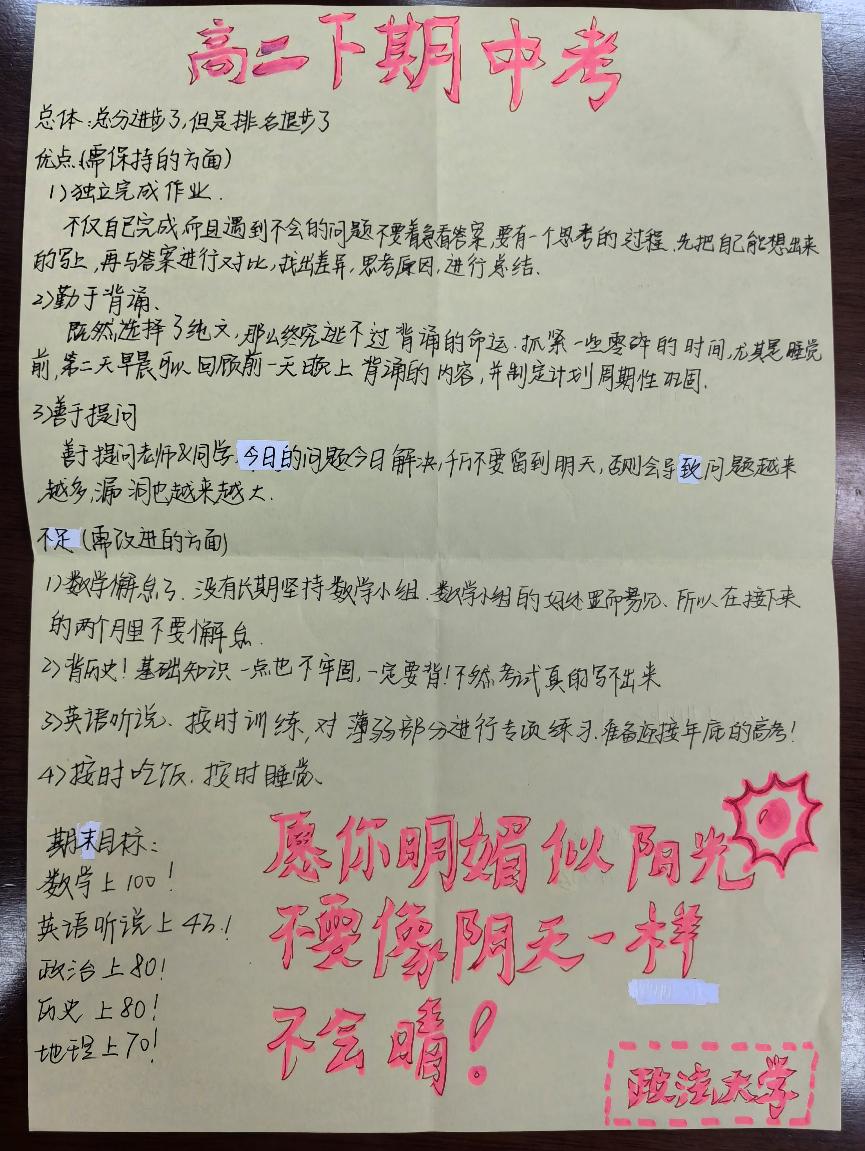 高二下期中考
总体:总分进步了,但是排名退步了
优点(需保持的方面)
1)独立完成作业.
不仅自己完成而且遇到不会的问题不要着急看答案,要有一个思考的过程.先把自己能想出来
的写上,再与答案进行对比,找出差异,思考原因,进行总结.
2)勤于背诵、
既然选择了纯文,那么终究逃不过背诵的命运.抓紧一些零碎的时间,尤其是睡觉
前,第二天早晨可以回顾前一天晚上背诵的内容,并制定计划周期性巩固.
3)善于提问
善于提问老师&同学.今日的问题今日解决,千万不要留到明天,否则会导致问题越来
越多,漏洞也越来越大.
不足(需改进的方面)
1)数学懈怠了.没有长期坚持数学小组.数学小组的好处显而易见、所以在接下来
的两个月里不要懈怠.
2)背历史!基础知识一点也不牢固,一定要背!不然考试真的写不出来
3)英语听说、按时训练,对薄弱部分进行专项练习.准备迎接年底的高考!
4)按时吃饭.按时睡觉、
期末目标:
数学上100!
英语听说上45!
政治上80!
历史上80!
地理上70!
愿你明媚似阳光
不要像阴天一样
不会晴!
政法大学